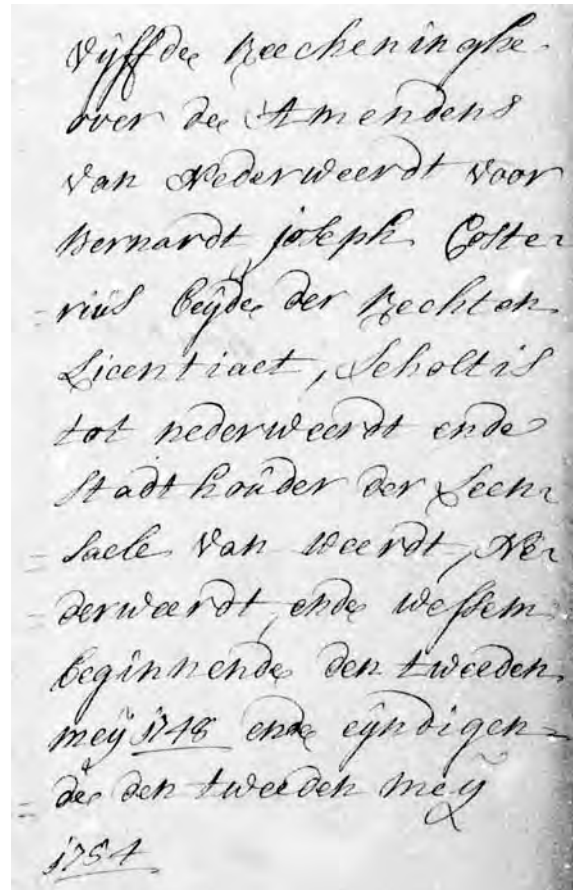 vijffde Reecheninghe
over de Amendens
van Nederweerdt voor
Bernardt joseph Coste=
=rius beijde der Rechten
Licentiaet, Scholtis
tot nederweerdt ende
Stadthouder der Leen=
=saele van weerdt, Ne=
=derweerdt, ende wessem
beginnende den tweeden
meij 1748 ende eijndigen=
=de den tweeden meij
1754